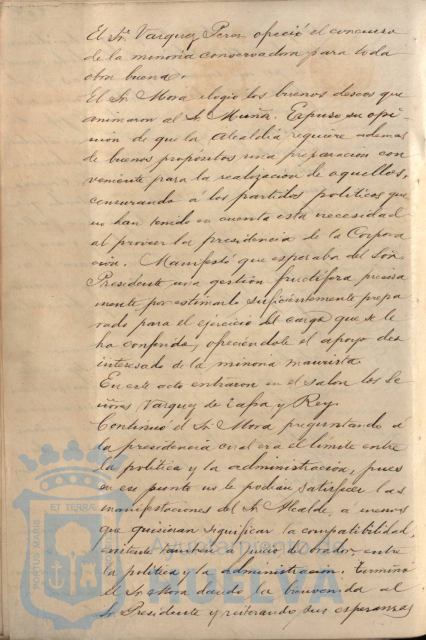 El Sr. Vazquez Perez ofreció el concurso
de la minoria conservadora para toda
obra buena.
El Sr. Mora elogio los buenos deseos que
animaron al Sr. Muñiz. Expuso su opi-
nión de que la Alcaldia requiere ademas
de buenos propósitos una preparacion con
veniente para la realización de aquellos,
censurando á los partidos politicos que
no han tenido en cuenta esta necesidad
al proveer la presidencia de la Corpora
ción. Manifestó que esperaba del Señor
Presidente una gestión fructifera precisa
mente por estimarlo suficientemente prepa
rado para el ejercicio del cargo que se le
ha conferido, ofreciendole el apoyo des
interesado de la minoria maurista.
En este acto entraron en el salon los Se
ñores Vazquez de Zafra y Rey.
Continuó el Sr. Mora preguntando a
la presidencia cual era el límite entre
la política y la administración, pues
en ese punto no le podian satisfacer las
manifestaciones del Sr. Alcalde, a menos
que quisieran significar la compatibilidad,
existente tambien a juicio del orador, entre
la politica y la administracion. Terminó
el Sr. Mora dando la bienvenida al
Sr. Presidente y reiterando sus esperanzas
PORTUS MARIS ET TERRÆ
Ayuntamiento de
HUELVA